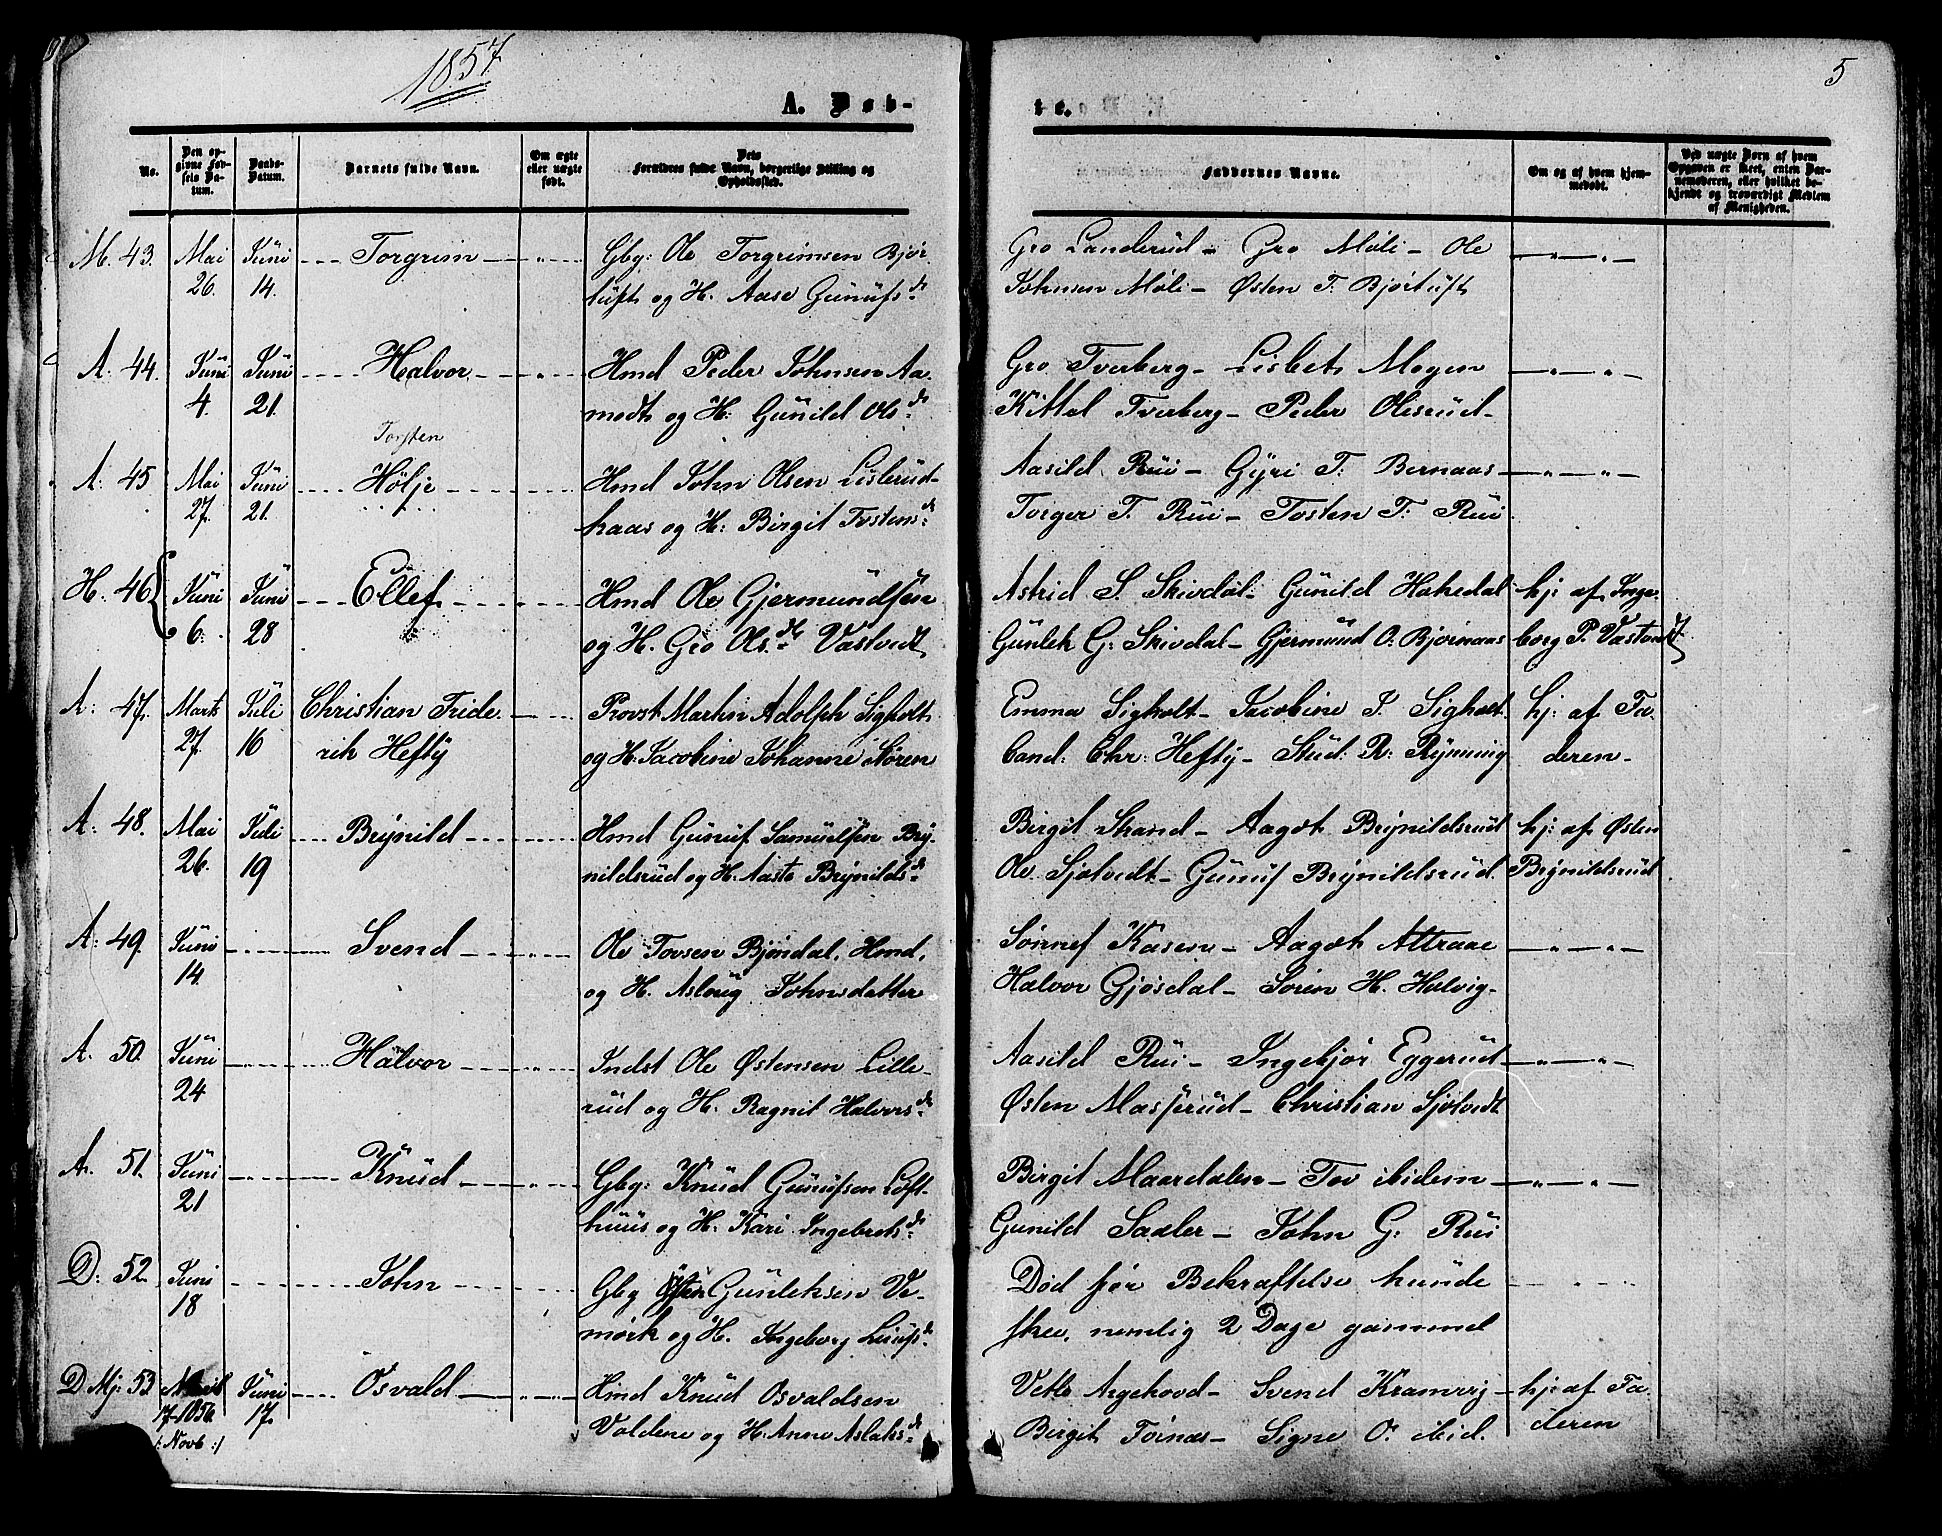 1857
5
A. Døb-
te.
No.
Den op-
givne Fød-
sels Da-
tum.
Daabs-
Datum.
Barnets fulde Navn.
Om ægte
eller uægte
født.
Dets
Forældres fulde Navn, borgerlige Stilling og
Opholdssted.
Faddernes Navne.
Om og af hvem hjem-
medøbt.
Ved uægte Børn af hvem
Opgaven er skeet, enten Bar-
nemoderen, eller hvilket be-
kjendt og troværdigt Medlem
af Menigheden.
M. 43. Mai 26. Juni 14. Torgrim Gbg: Ole Torgrimsen Bjør-
tuft og H. Aase Gunufsdr
Gro Landerud - Gro Møli - Ole
Johnsen Møli - Østen T. Bjørtuft
A. 44. Juni 4. Juni 21. Halvor Hmd Peder Johnsen Aa-
modt og H. Gunild Olsdr
Gro Tverberg - Lisbet Mogen
Kittel Tverberg - Peder Olesrud -
Torsten
A. 45 Mai 27. Juni 21. Hølje Hmd John Olsen Lislerud-
haas og H: Birgit Tostensdr
Aasild Rui - Gyri T. Bernaas
Torger T. Rui - Tosten T. Rui
H. 46 Juni 6. Juni 28 Ellef Hmd Ole Gjermundsen
og H. Gro Olsdr Vastvedt
Astrid S. Skivdal - Gunild Hakedal
Gunlek G. Skivdal - Gjermund O. Bjørnaas
hj: af Inge-
borg P. Vastvedt
A: 47. Marts 27. Juli 16 Christian Fride-
rik Hefty
Provst Martin Adolph Sigholt
og H. Jacobine Johanne Søren
Emma Sigholt - Jacobine J. Sigholt
Cand: Chr: Hefty - Stud: R: Rynning
hj: af Fa-
deren -
A: 48. Mai 26. Juli 19 Brynild Hmd Gunuf Samuelsen Bry-
nildsrud og H. Aaste Brynildsdr
Birgit Strand - Aagot Brynildsrud
Ole Sjotvedt - Gunuf Brynildsrud.
hj: af Østen
Brynildsrud
A: 49. Juni 14. Svend Ole Tovsen Bjøndal, Hmd,
og H. Aslaug Johnsdatter
Sønnef Kasen - Aagot Attraae
Halvor Gjøsdal - Søren H. Halvig -
A. 50. Juni 24 Halvor Indst Ole Østensen Lille-
rud og H. Ragnil Halvorsdr
Aasild Rui - Ingebjør Eggerud
Østen Masserud - Christian Sjotvedt
A. 51. Juni 21 Knud Gbg: Knud Gunufsen Loft-
huus og H. Kari Ingebretsdr
Birgit Maardalen - Tov ibidem
Gunild Saaler - John G. Rui
D: 52. Juni 18 John Gbg Østen Gunleksen Ve-
mork og H. Ingeborg Leiufsdr
Død før Bekræftelse kunde
skee, nemlig 2 Dage gammel
D. Mj: 53 April 17-1856 /: Novb :/ Juni 17. Osvald Hmd Knud Osvaldsen
Valdene og H. Anne Aslaksdr
Vetle Argehovd - Svend Kramvig
Birgit Toinas - Signe O. ibid.
hj: af Fa-
deren